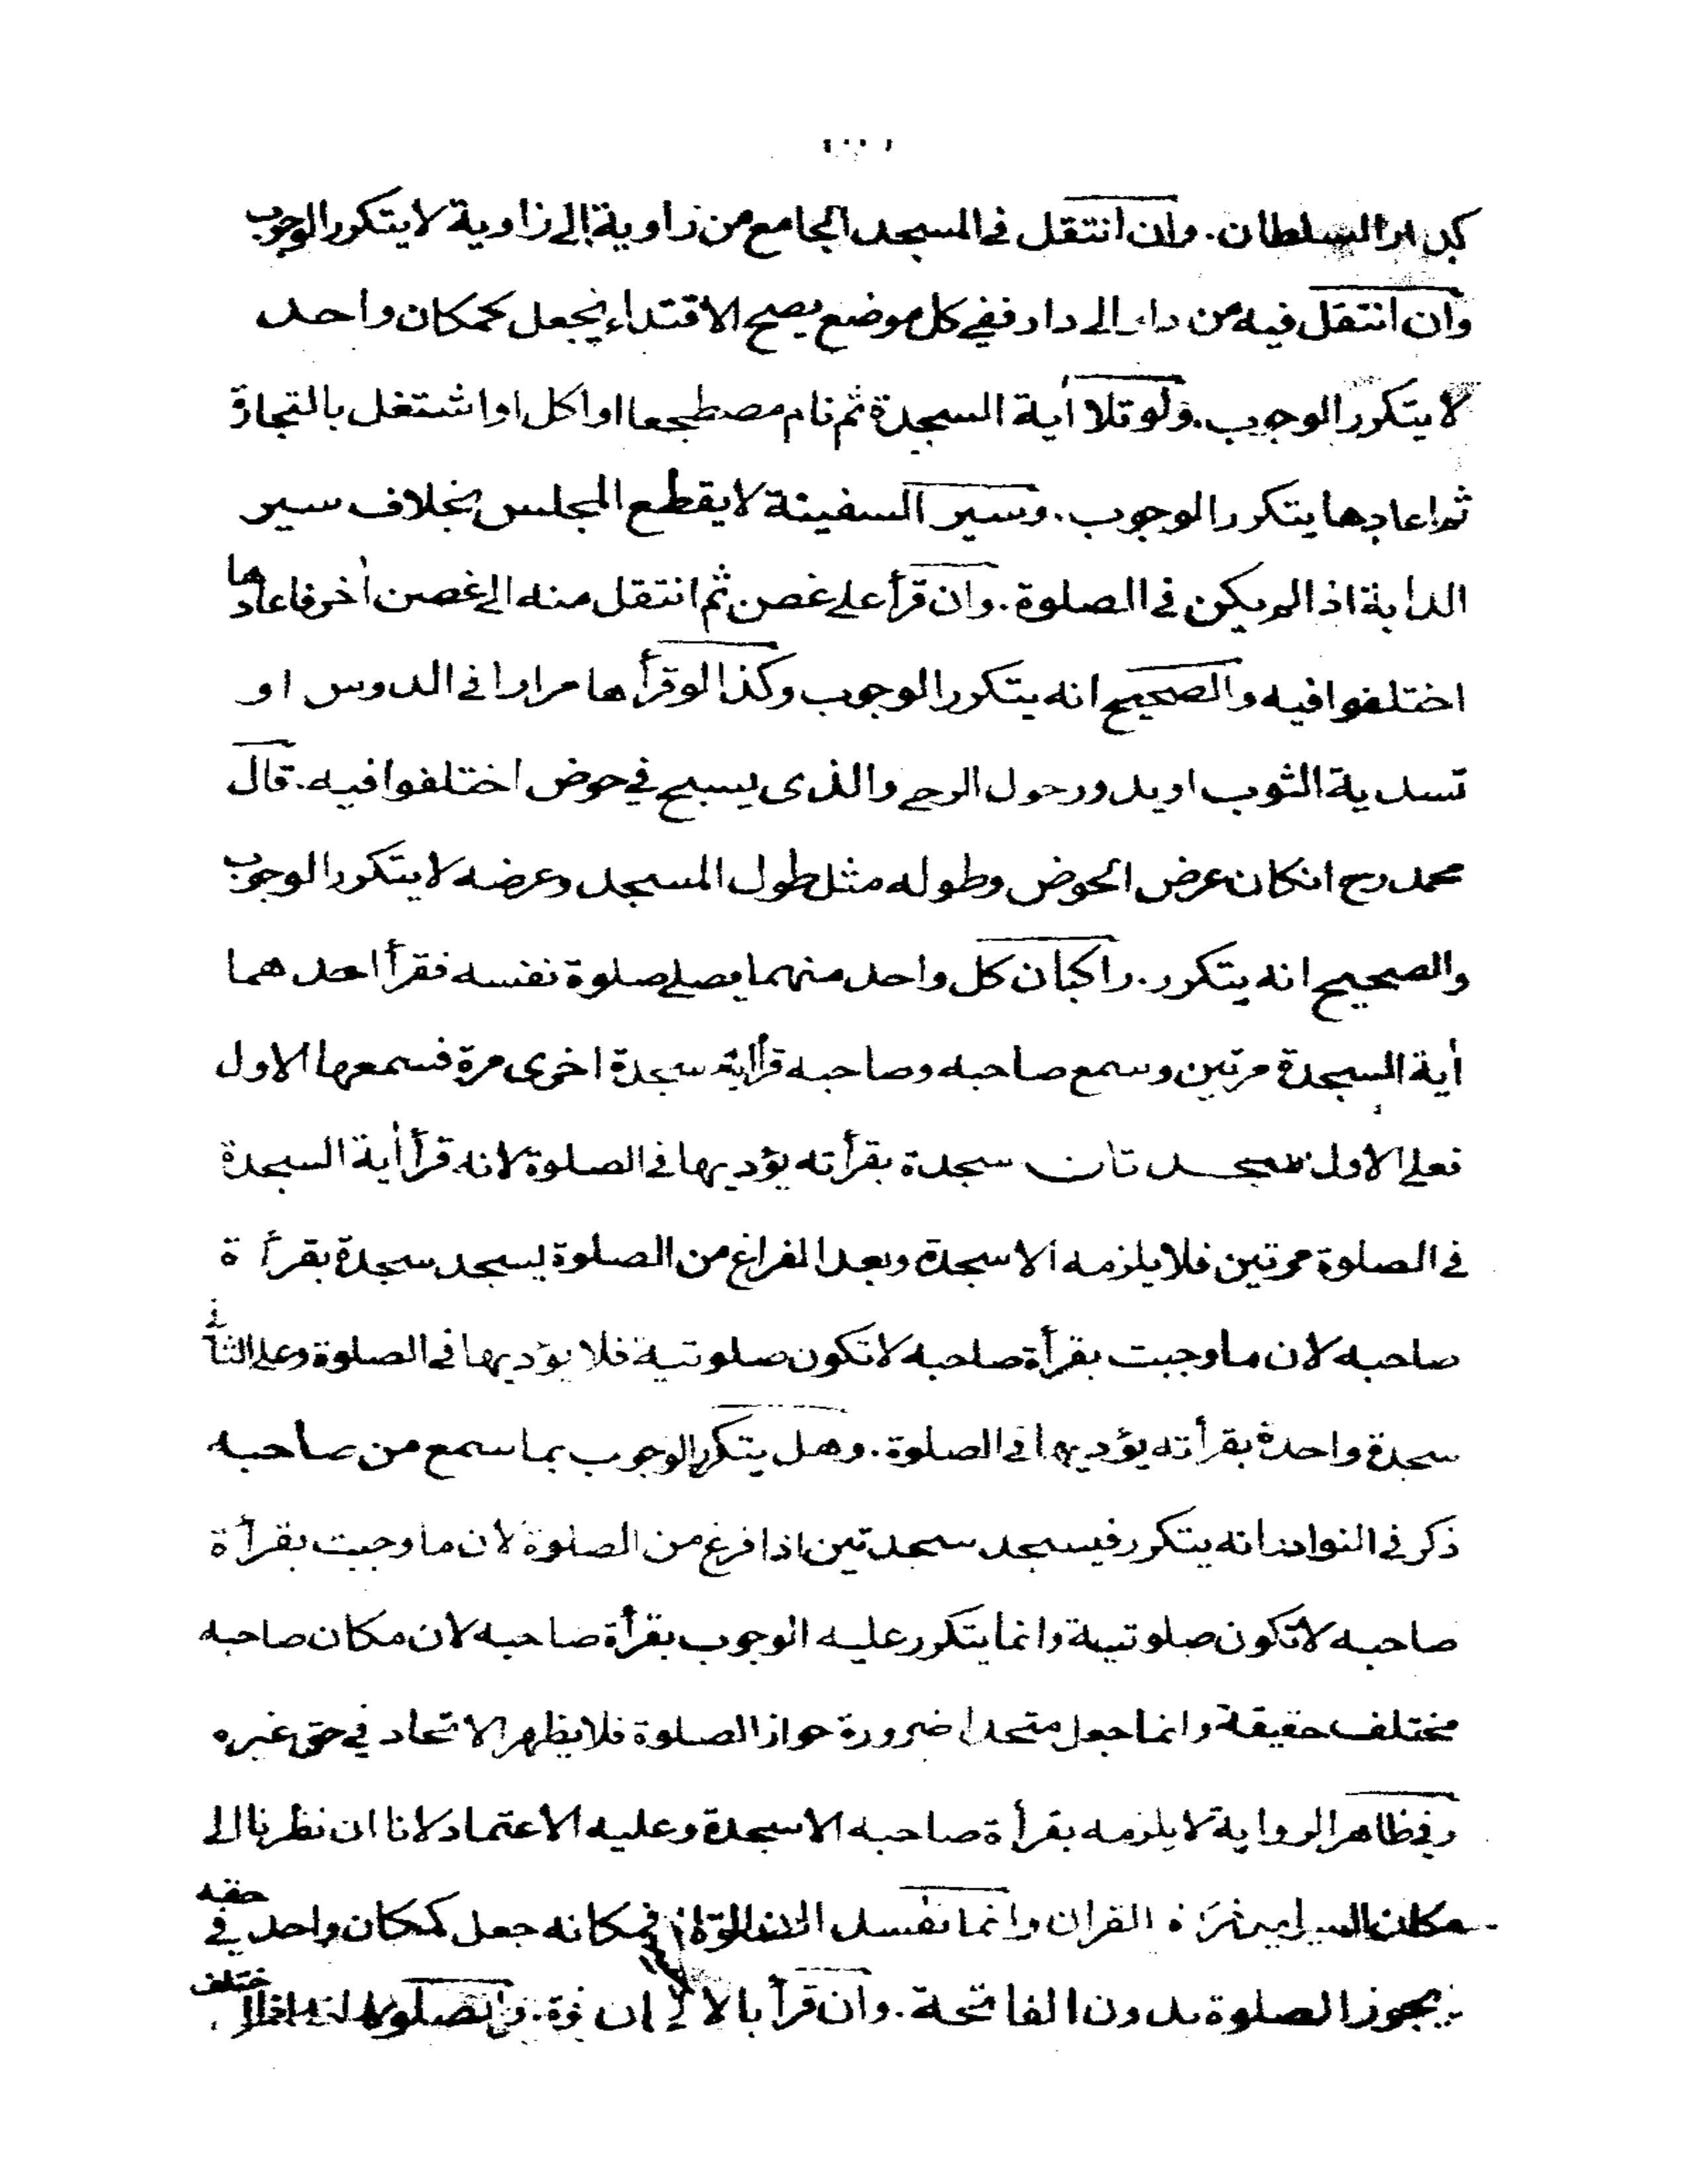 كدار السلطان. وان انتقل فى المسجد الجامع من زاوية الى زاوية لا يتكرر الوجوب
وان انتقل فيه من دار الى دار ففى كل موضع يصح الاقتداء يجعل كمكان واحد
لا يتكرر الوجوب. ولو تلا أية السجدة ثم نام مضطجعا او اكل او اشتغل بالتجارة
ثم اعادها يتكرر الوجوب. وسير السفينة لا يقطع المجلس بخلاف سير
الدابة اذا لم يكن فى الصلوة. وان قرأ على غصن ثم انتقل منه الى غصن أخر فاعادها
اختلفوا فيه والصحيح انه يتكرر الوجوب وكذا لو قرأها مرارا فى الدوس او
تسدية الثوب او يدور حول الرحى والذى يسبح في حوض اختلفوا فيه. قال
محمد رح انكان عرض الحوض وطوله مثل طول المسجد وعرضه لا يتكرر الوجوب
والصحيح انه يتكرر. راكبان كل واحد منهما يصلى صلوة نفسه فقرأ احدهما
أية السجدة مرتين وسمع صاحبه وصاحبه قرأ أية سجدة اخرى مرة فسمعها الاول
فعلى الاول سجدتان سجدة بقرأته يؤديها فى الصلوة لانه قرأ أية السجدة
فى الصلوة مرتين فلا يلزمه الا سجدة وبعد الفراغ من الصلوة يسجد سجدة بقرأة
صاحبه لان ما وجبت بقرأة صاحبه لا تكون صلوتية فلا يؤديها فى الصلوة وعلى الثانى
سجدة واحدة بقرأته يؤديها فى الصلوة. وهل يتكرر الوجوب بما سمع من صاحبه
ذكر فى النوادر انه يتكرر فيسجد سجدتين اذا فرغ من الصلوة لان ما وجبت بقرأة
صاحبه لا تكون صلوتية وانما يتكرر عليه الوجوب بقرأة صاحبه لان مكان صاحبه
مختلف حقيقة وانما جعل متحدا ضرورة جواز الصلوة فلا يظهر الاتحاد في حق غيره
وفى ظاهر الرواية لا يلزمه بقرأة صاحبه الا سجدة وعليه الاعتماد لانا ان نظرنا الى
مكان القران وانما تفسد فمكانه جعل كمكان واحد في حقه
يجوز الصلوة بدون الفاتحة. وان قرأ